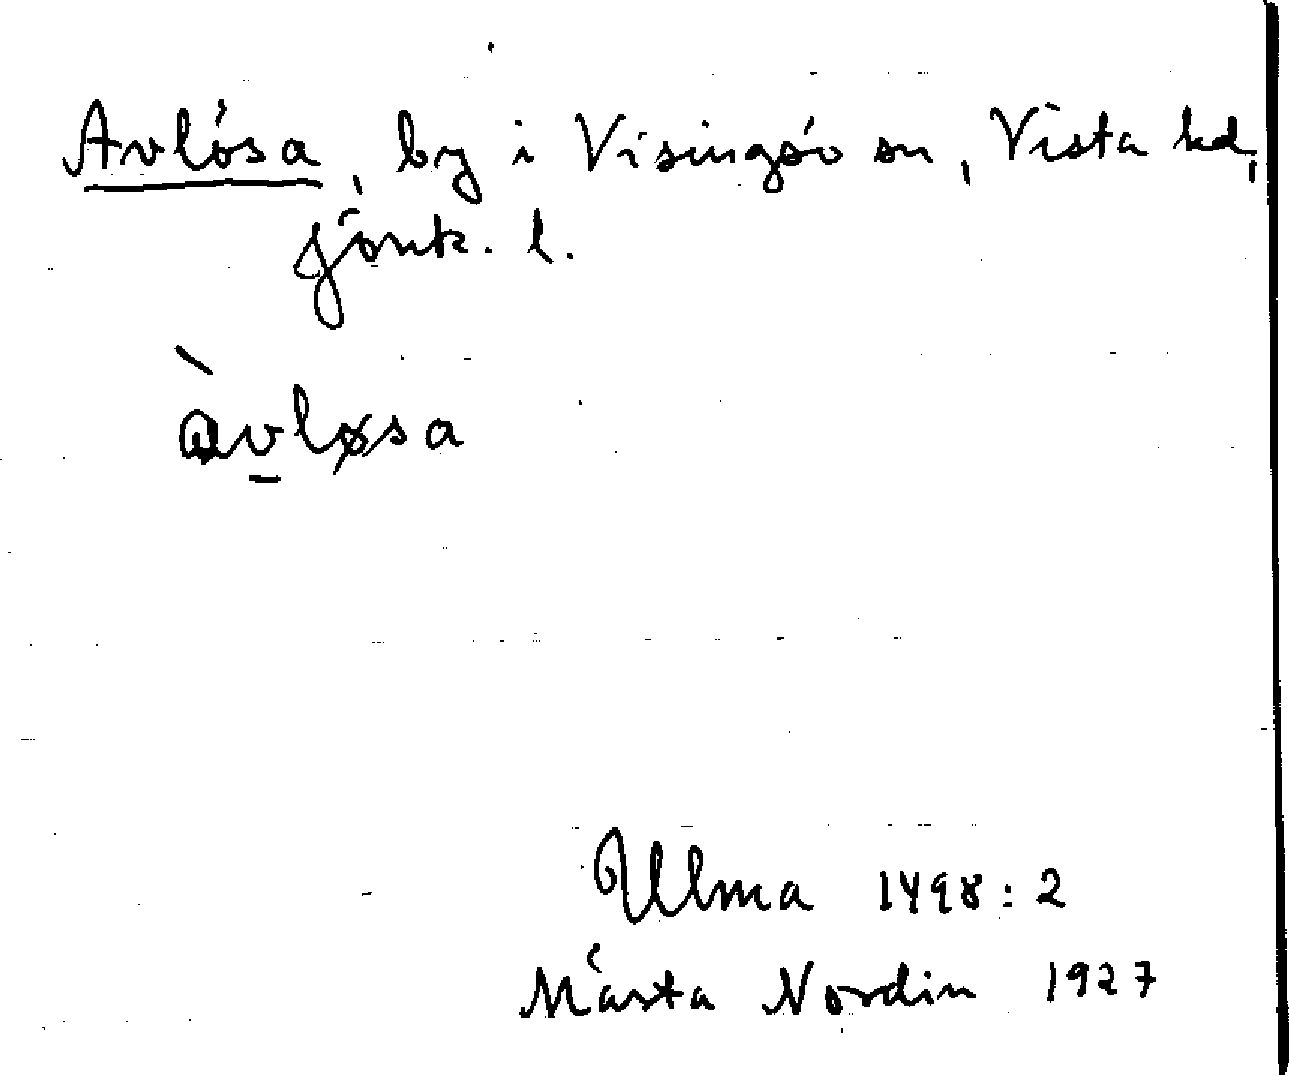 Avlösa, by i Visingsö sn, Vista hd,
Jönk. l.
àvløsa
Ulma 1498:2
Märta Nordin 1927